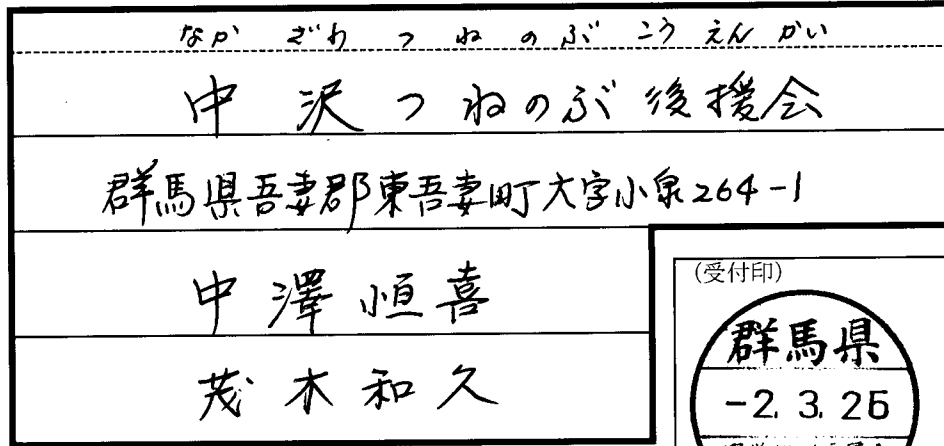 なかざわつねのぶこうえんかい
中沢つねのぶ後援会
群馬県吾妻郡東吾妻町大字小泉264-1
中澤恒喜
茂木和久
(受付印)
群馬県
-2.3.26